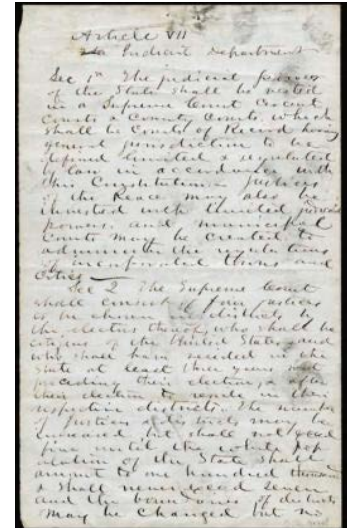 Article VII
Judicial Department
Sec 1st The judicial power
of the State shall be vested
in a Supreme Court Circuit
Courts & County Courts, which
shall be Courts of Record having
general jurisdiction to be
defined limited & regulated
by law in accordance with
this Constitution. Justices
of the Peace may also be
invested with limited judicial
powers, and municipal
Courts may be created to
administer the regulations
of incorporated towns and
Cities
Sec 2 The Supreme Court
shall consist of four justices
to be chosen in districts by
the electors thereof, who shall be
citizens of the United States, and
who shall have resided in the
State at least three years next
preceding their election, & after
their election to reside in their
respective districts. The number
of Justices & districts may be
increased, but shall not exceed
five until the white pop
ulation of the State shall
amount to one hundred thousand
& shall never exceed seven
and the boundaries of districts
may be changed but no